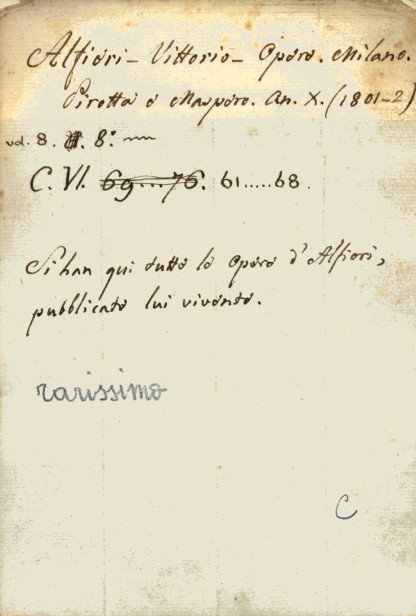 Alfieri - Vittorio - Opere. Milano.
Pirotta e Maspero. An. X. (1801-2)
vol. 8. 8.°
C. VI. 69...76. 61.....68.
Si han qui tutte le opere d'Alfieri,
pubblicate lui vivente.
rarissimo
C